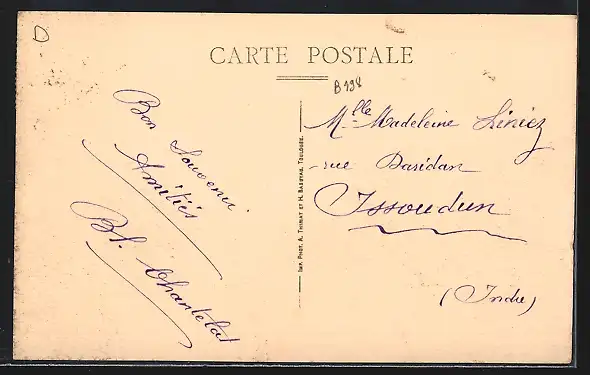 CARTE POSTALE
B 198
Bon Souvenir
Amitiés
Bl. Chantelat
IMP. PHOT. A. THIRIAT ET H. BASUYAU, TOULOUSE.
Mlle Madeleine Liniez
rue Dasidan
Issoudun
(Indre)